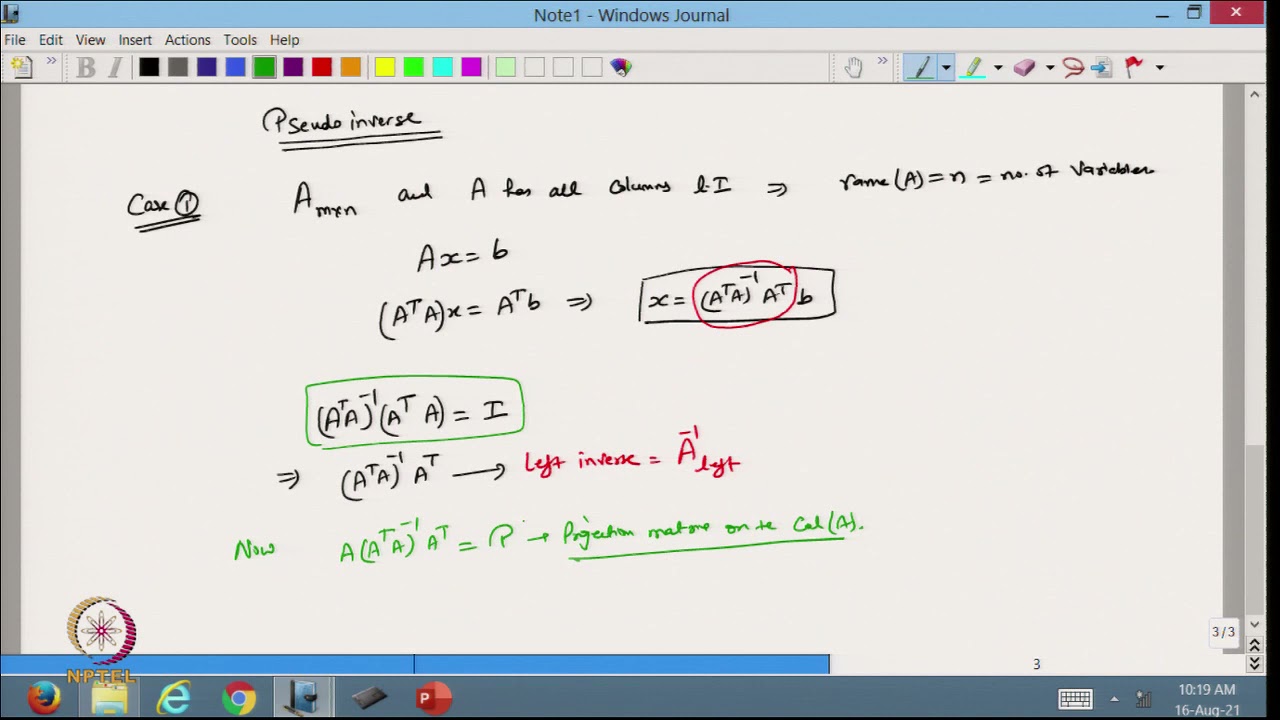 Note1 - Windows Journal
File Edit View Insert Actions Tools Help
Pseudo inverse
Case ① A m×n and A has all columns l.I ⇒ (A) = n = no. of variables
Ax = b
(AᵀA)x = Aᵀb ⇒ x = (AᵀA)⁻¹ Aᵀ b
(AᵀA)⁻¹(Aᵀ A) = I
⇒ (AᵀA)⁻¹ Aᵀ ⟶ left inverse = A⁻¹ left
Now A(AᵀA)⁻¹ Aᵀ = P → Projection on Col(A).
NPTEL
3/3
3
10:19 AM
16-Aug-21